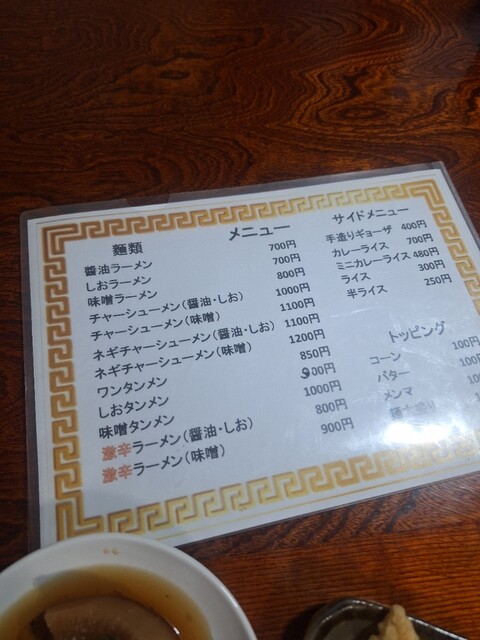 メニュー
麺類
醤油ラーメン 700円
しおラーメン 700円
味噌ラーメン 800円
チャーシューメン(醤油・しお) 1000円
チャーシューメン(味噌) 1100円
ネギチャーシューメン(醤油・しお) 1100円
ネギチャーシューメン(味噌) 1200円
ワンタンメン 850円
しおタンメン 900円
味噌タンメン 1000円
激辛ラーメン(醤油・しお) 800円
激辛ラーメン(味噌) 900円
サイドメニュー
手造りギョーザ 400円
カレーライス 700円
ミニカレーライス 480円
ライス 300円
半ライス 250円
トッピング
コーン 100円
バター 100
メンマ 100